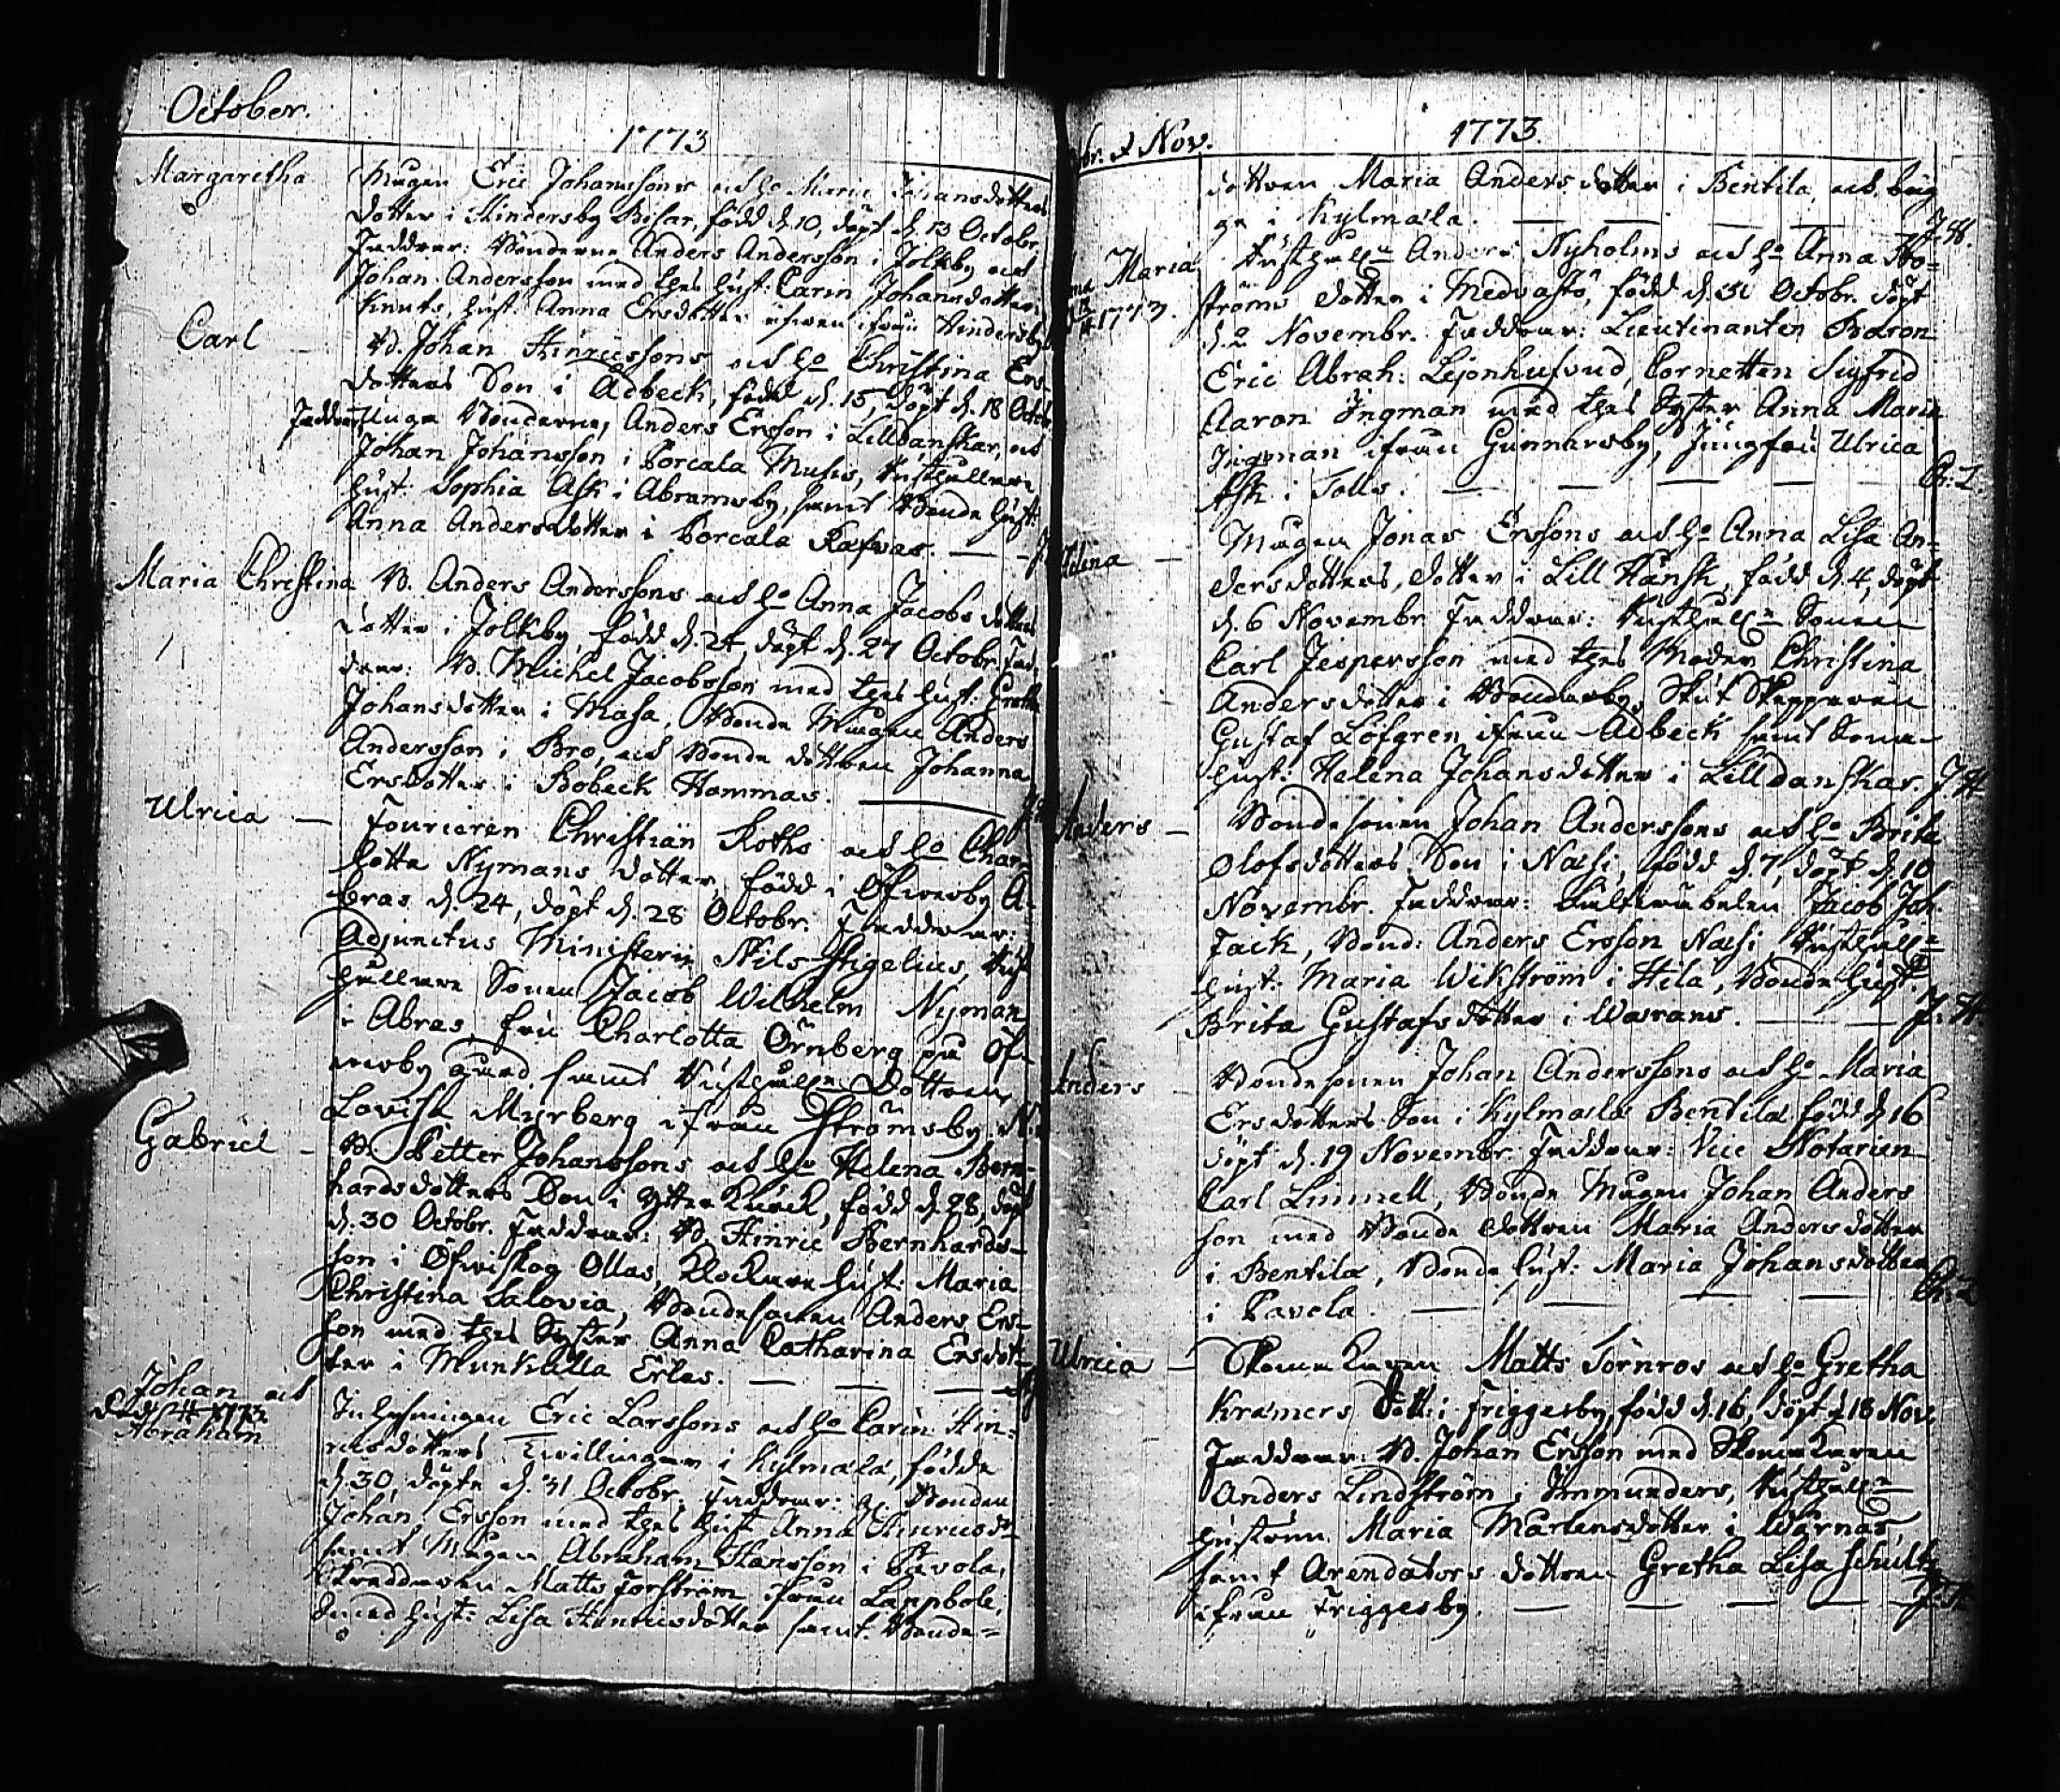 October.
1773
Margaretha
Mågen Eric Johanssons och h:o Maria Johansdotters
dotter i Hindersby Bisar, född d. 10, döpt d. 13 Octobr.
Faddrar: Bönderne Anders Andersson i Jolkby och
Johan Andersson med thes hust: Carin Johansdotter
Knuts, hust. Anna Ersdotter ifrån Hindersby
Carl
B. Johan Hinricssons och h:o Christina Ers-
dotters Son i Adbeck, född d. 15, döpt d. 18 Octob.
Faddrar: Unga Bönderne, Anders Ersson i Lilldanskar, och
Johan Johansson i Porcala Muses, Rusthållare
hust. Sophia Ask i Abramsby, samt Bonde hust:
Anna Andersdotter i Porcala Räfvas.
Maria Christina
B. Anders Anderssons och h:o Anna Jacobs dotters
dotter i Jolkby, född d. 24, döpt d. 27 Octobr. Fad-
drar: B. Michel Jacobsson med thes hust: Gretha
Johansdotter i Masa, Bonde Mågen Anders
Andersson i Bro, och Bonde dottren Johanna
Ersdotter i Bobeck Hommas.
Ulrica
Fourieren Christian Roths och h:o Char-
lotta Nymans dotter, född i Öfwerby A-
bras d. 24, döpt d. 28 Octobr. Faddrar:
Adjunctus Ministerii Nils Stigelius, Rust
hållare Sonen Jacob Wilhelm Nyman
i Abras, fru Charlotta Örnberg på Öf-
werby gård samt Rusthåll:n Dottren
Lovisa Myrberg ifrån Strömsby
Gabriel
B. Petter Johanssons och h:o Helena Bern-
hardsdotters Son i Ytter Kurck, född d. 28, döpt
d. 30 Octobr. Faddrar: B. Hinric Bernhards-
son i Öfwitskog Ollas, Klockare hust: Maria
Christina Salovia, Bondesonen Anders Ers-
son med thes Syster Anna Catharina Ersdot-
ter i Munkulla Erlas.
Johan och
Död 1773
Abraham
Inhysningen Eric Larssons och h:o Carin Hin-
ricsdotters Twillingar i Kylmälä, födde
d. 30, döpte d. 31 Octobr. Faddrar: Bonden
Johan Ersson med thes hust Anna Hinricsd:r
samt Mågen Abraham Hansson i Pavola,
Skräddaren Matts Forström ifrån Lappböle,
Smed hust: Lisa Hinricsdotter samt Bonde-
br. & Nov.
1773.
dottren Maria Andersdotter i Bentila och byg
ge i Kylmälä.
Maria
1773.
Rusthåll:n Anders Nyholms och h:o Anna
ströms dotter i Medvastö, född d. 31 Octobr. döpt
d. 2 Novembr. Faddrar: Lieutinanten Baron
Eric Abrah: Lejonhufvud, Cornetten Sigfrid
Aaron Ingman med thes Syster Anna Maria
Ingman ifrån Gunnarsby, Jungfru Ulrica
Ask i Tolls.
Helena
Mågen Jonas Erssons och h:o Anna Lisa An-
dersdotters, dotter i Lill Kansk, född d. 4, döpt
d. 6 Novembr. Faddrar: Rusthåll:n Sonen
Carl Jespersson med thes Moder Christina
Andersdotter i Bondarby, Skut Skepparen
Gustaf Löfgren ifrån Adbeck samt
hust: Helena Johansdotter i Lilldanskar. J. H.
Anders
Bondesonen Johan Anderssons och h:o Brita
Olofsdotters Son i Näsi, född d. 7, döpt d. 10
Novembr. Faddrar: Jacob Joh.
Tack, Bond: Anders Ersson Näsi Rusthåll:n
hust: Maria Wikström i Hila, Bonde hust.
Brita Gustafsdotter i Warans. J. H.
Anders
Bondesonen Johan Anderssons och h:o Maria
Ersdotters Son i Kylmälä Bentila född d. 16
döpt d. 19 Novembr. Faddrar: Vice Notarien
Carl Limnell, Bonde Mågen Johan Anders
son med Bonde dottren Maria Andersdotter
i Bentila, Bonde hust: Maria Johansdotter
i Pavola.
Ulrica
Skomakaren Matts Törnros och h:o Gretha
Kramers Dott: i Friggesby, född d. 16, döpt d. 18 Nov.
Faddrar: B. Johan Ersson med Skomakaren
Anders Lindström i Immunders, Rusthåll:n
hustrun Maria Martensdotter i Wärnäs,
samt Arendators dottren Gretha Lisa Schultz
ifrån Friggesby.